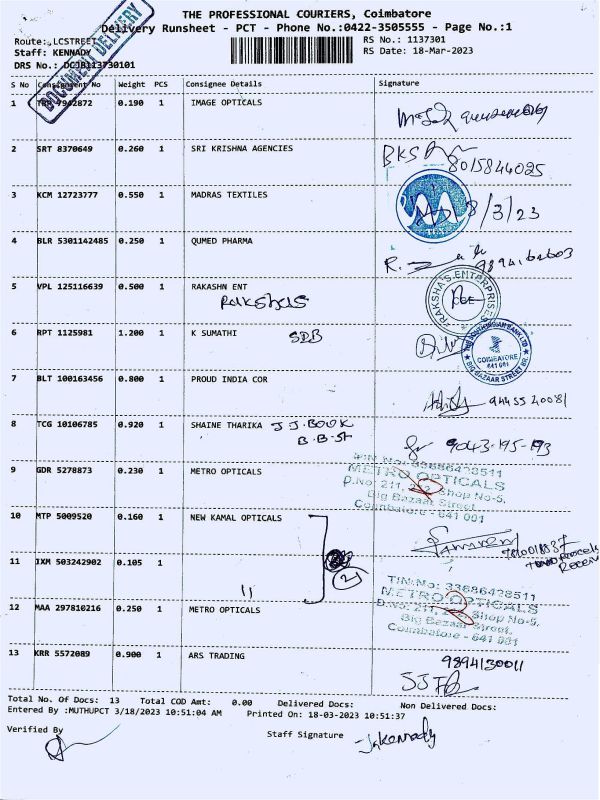 THE PROFESSIONAL COURIERS, Coimbatore
Delivery Runsheet - PCT - Phone No.:0422-3505555 - Page No.:1
Route: LCSTREET
RS No.: 1137301
Staff: KENNADY
RS Date: 18-Mar-2023
DRS No.:
DOCUMENT DELIVERY
S No Consignment No Weight PCS Consignee Details Signature
1 7942872 0.190 1 IMAGE OPTICALS
2 SRT 8370649 0.260 1 SRI KRISHNA AGENCIES
BKS
8015844025
3 KCM 12723777 0.550 1 MADRAS TEXTILES
8/3/23
4 BLR 5301142485 0.250 1 QUMED PHARMA
5 VPL 125116639 0.500 1 RAKASHN ENT
RAKSHAS
RAKSHA'S ENTERPRISES
6 RPT 1125981 1.200 1 K SUMATHI SDB
COIMBATORE
641 001
BIG BAZAAR STREET BR.
7 BLT 100163456 0.800 1 PROUD INDIA COR
8 TCG 10106785 0.920 1 SHAINE THARIKA J J. BOOK
B.B-St
9043-195-193
9 GDR 5278873 0.230 1 METRO OPTICALS
TIN No: 33686428511
METRO OPTICALS
D.No: 211, 212, Shop No-5,
Big Bazaar Street,
Coimbatore - 641 001
10 MTP 5009520 0.160 1 NEW KAMAL OPTICALS
11 IXM 503242902 0.105 1
(2)
12 MAA 297810216 0.250 1 METRO OPTICALS
TIN.No: 33686428511
METRO OPTICALS
D.No: 211, 212, Shop No-5,
Big Bazaar Street,
Coimbatore - 641 001
13 KRR 5572089 0.900 1 ARS TRADING
9894130011
Total No. Of Docs: 13 Total COD Amt: 0.00 Delivered Docs: Non Delivered Docs:
Entered By :MUTHUPCT 3/18/2023 10:51:04 AM Printed On: 18-03-2023 10:51:37
Verified By
Staff Signature